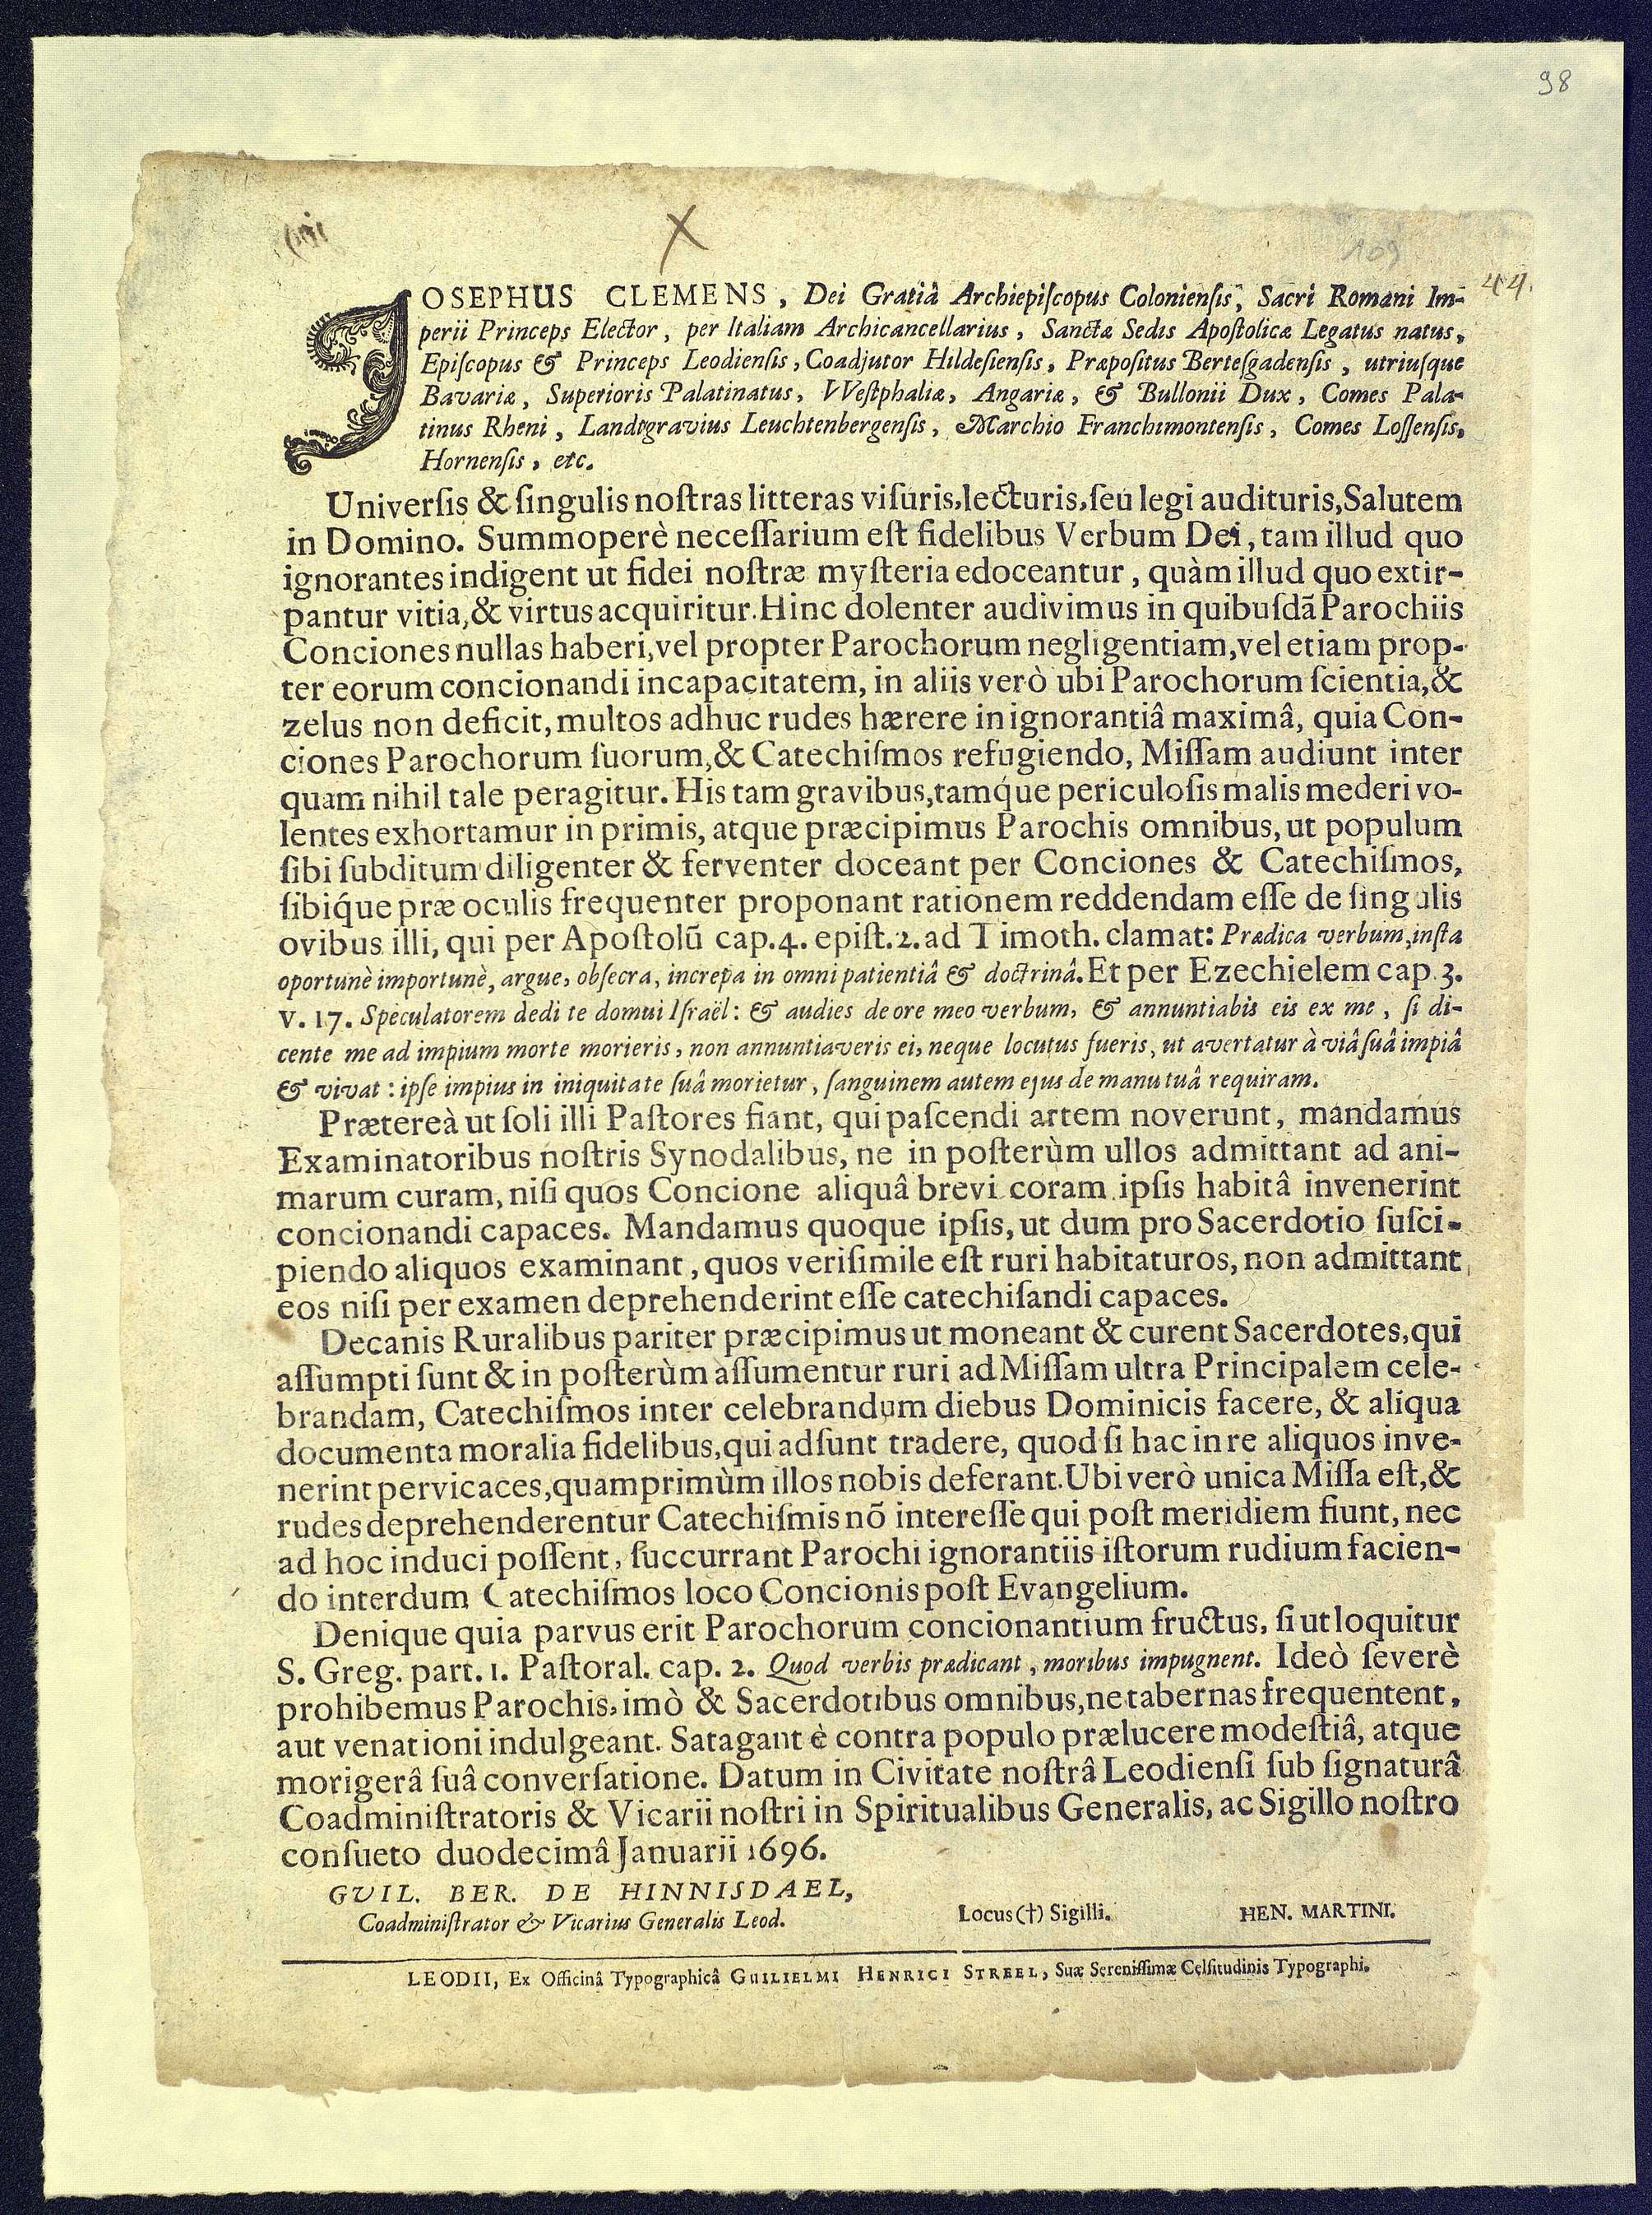 98
X
109
44.
JOSEPHUS CLEMENS, Dei Gratiâ Archiepiſcopus Colonienſis, Sacri Romani Im-
perii Princeps Elector, per Italiam Archicancellarius, Sanctæ Sedis Apoſtolicæ Legatus natus,
Epiſcopus & Princeps Leodienſis, Coadjutor Hildeſienſis, Præpoſitus Berteſgadenſis, utriuſque
Bavariæ, Superioris Palatinatus, VVeſtphaliæ, Angariæ, & Bullonii Dux, Comes Pala-
tinus Rheni, Landtgravius Leuchtenbergenſis, Marchio Franchimontenſis, Comes Loſſenſis,
Hornenſis, etc.
Univerſis & ſingulis noſtras litteras viſuris, lecturis, ſeu legi audituris, Salutem
in Domino. Summoperè neceſſarium eſt fidelibus Verbum Dei, tam illud quo
ignorantes indigent ut fidei noſtræ myſteria edoceantur, quàm illud quo extir-
pantur vitia, & virtus acquiritur. Hinc dolenter audivimus in quibuſdã Parochiis
Conciones nullas haberi, vel propter Parochorum negligentiam, vel etiam prop-
ter eorum concionandi incapacitatem, in aliis verò ubi Parochorum ſcientia, &
zelus non deficit, multos adhuc rudes hærere in ignorantiâ maximâ, quia Con-
ciones Parochorum ſuorum, & Catechiſmos refugiendo, Miſſam audiunt inter
quam nihil tale peragitur. His tam gravibus, tamq́ue periculoſis malis mederi vo-
lentes exhortamur in primis, atque præcipimus Parochis omnibus, ut populum
ſibi ſubditum diligenter & ferventer doceant per Conciones & Catechiſmos,
ſibiq́ue præ oculis frequenter proponant rationem reddendam eſſe de ſingulis
ovibus illi, qui per Apoſtolũ cap. 4. epiſt. 2. ad Timoth. clamat: Prædica verbum, inſta
oportunè importunè, argue, obſecra, increpa in omni patientiâ & doctrinâ. Et per Ezechielem cap. 3.
v. 17. Speculatorem dedi te domui Iſraël: & audies de ore meo verbum, & annuntiabis eis ex me, ſi di-
cente me ad impium morte morieris, non annuntiaveris ei, neque locutus fueris, ut avertatur à viâ ſuâ impiâ
& vivat: ipſe impius in iniquitate ſuâ morietur, ſanguinem autem ejus de manu tuâ requiram.
Prætereà ut ſoli illi Paſtores fiant, qui paſcendi artem noverunt, mandamus
Examinatoribus noſtris Synodalibus, ne in poſterùm ullos admittant ad ani-
marum curam, niſi quos Concione aliquâ brevi coram ipſis habitâ invenerint
concionandi capaces. Mandamus quoque ipſis, ut dum pro Sacerdotio ſuſci-
piendo aliquos examinant, quos veriſimile eſt ruri habitaturos, non admittant
eos niſi per examen deprehenderint eſſe catechiſandi capaces.
Decanis Ruralibus pariter præcipimus ut moneant & curent Sacerdotes, qui
aſſumpti ſunt & in poſterùm aſſumentur ruri ad Miſſam ultra Principalem cele-
brandam, Catechiſmos inter celebrandum diebus Dominicis facere, & aliqua
documenta moralia fidelibus, qui adſunt tradere, quod ſi hac in re aliquos inve-
nerint pervicaces, quamprimùm illos nobis deferant. Ubi verò unica Miſſa eſt, &
rudes deprehenderentur Catechiſmis nõ intereſſe qui poſt meridiem fiunt, nec
ad hoc induci poſſent, ſuccurrant Parochi ignorantiis iſtorum rudium facien-
do interdum Catechiſmos loco Concionis poſt Evangelium.
Denique quia parvus erit Parochorum concionantium fructus, ſi ut loquitur
S. Greg. part. 1. Paſtoral. cap. 2. Quod verbis prædicant, moribus impugnent. Ideò ſeverè
prohibemus Parochis, imò & Sacerdotibus omnibus, ne tabernas frequentent,
aut venationi indulgeant. Satagant è contra populo prælucere modeſtiâ, atque
morigerâ ſuâ converſatione. Datum in Civitate noſtrâ Leodienſi ſub ſignaturâ
Coadminiſtratoris & Vicarii noſtri in Spiritualibus Generalis, ac Sigillo noſtro
conſueto duodecimâ Januarii 1696.
GUIL. BER. DE HINNISDAEL,
Coadminiſtrator & Vicarius Generalis Leod.
Locus (†) Sigilli.
HEN. MARTINI.
LEODII, Ex Officinâ Typographicâ GUILIELMI HENRICI STREEL, Suæ Sereniſſimæ Celſitudinis Typographi.